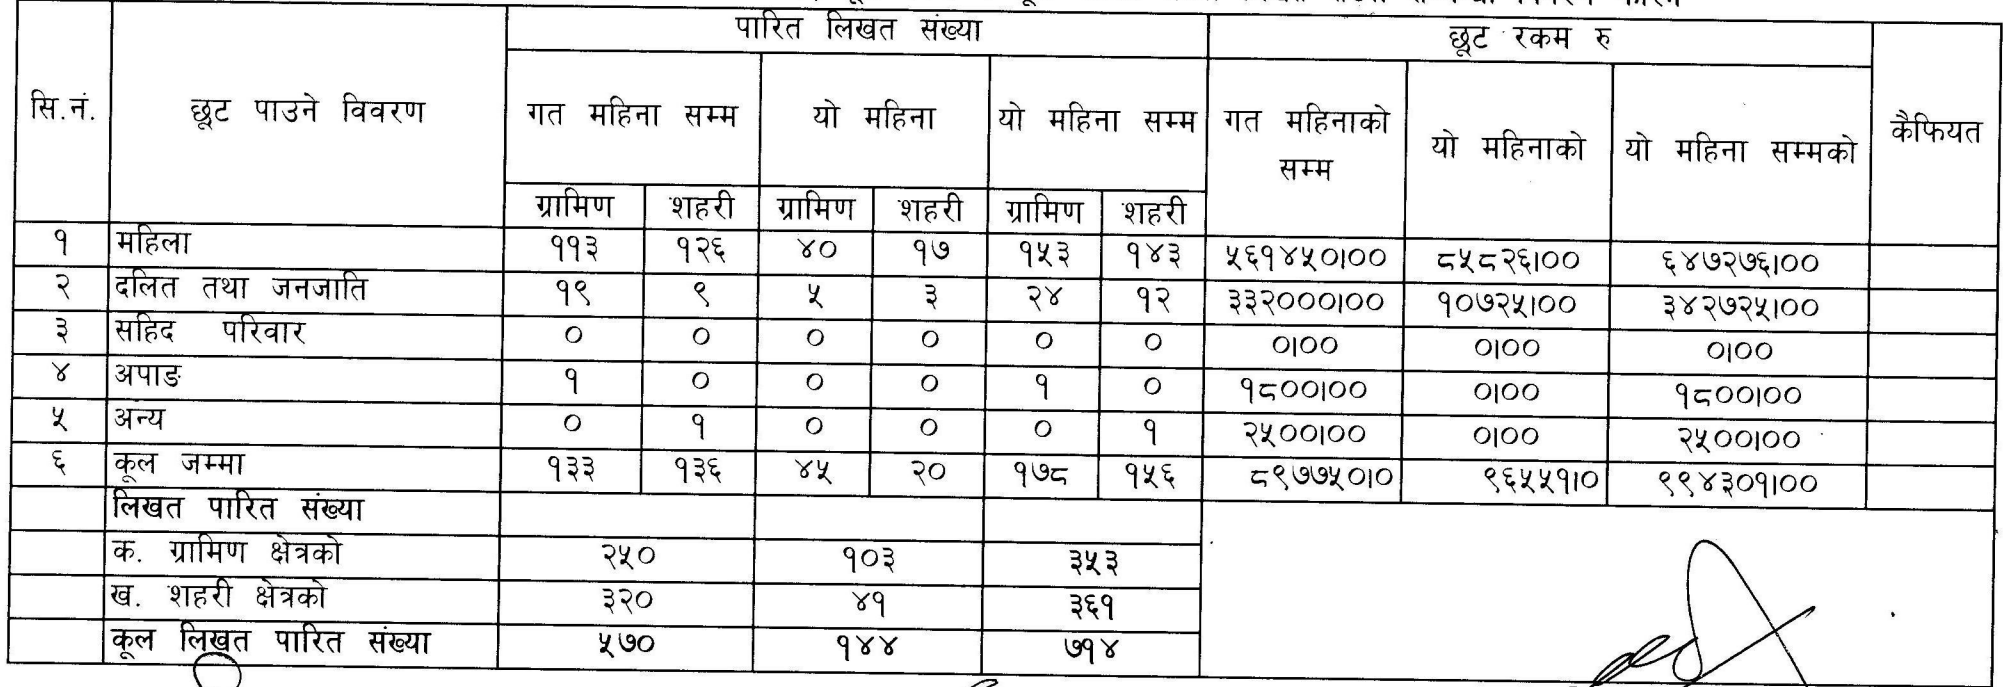 पारित लिखत संख्या छूट रकम रु
सि.नं. छूट पाउने विवरण गत महिना सम्म यो महिना यो महिना सम्म गत महिनाको सम्म यो महिनाको यो महिना सम्मको कैफियत
ग्रामिण शहरी ग्रामिण शहरी ग्रामिण शहरी
१ महिला ११३ १२६ ४० १७ १५३ १४३ ५६१४५०|०० ८५८२६|०० ६४७२७६|००
२ दलित तथा जनजाति १९ ९ ५ ३ २४ १२ ३३२०००|०० १०७२५|०० ३४२७२५|००
३ सहिद परिवार ० ० ० ० ० ० ०|०० ०|०० ०|००
४ अपाङ १ ० ० ० १ ० १८००|०० ०|०० १८००|००
५ अन्य ० १ ० ० ० १ २५००|०० ०|०० २५००|००
६ कूल जम्मा १३३ १३६ ४५ २० १७८ १५६ ८९७७५०|० ९६५५१|० ९९४३०१|००
लिखत पारित संख्या
क. ग्रामिण क्षेत्रको २५० १०३ ३५३
ख. शहरी क्षेत्रको ३२० ४१ ३६१
कूल लिखत पारित संख्या ५७० १४४ ७१४